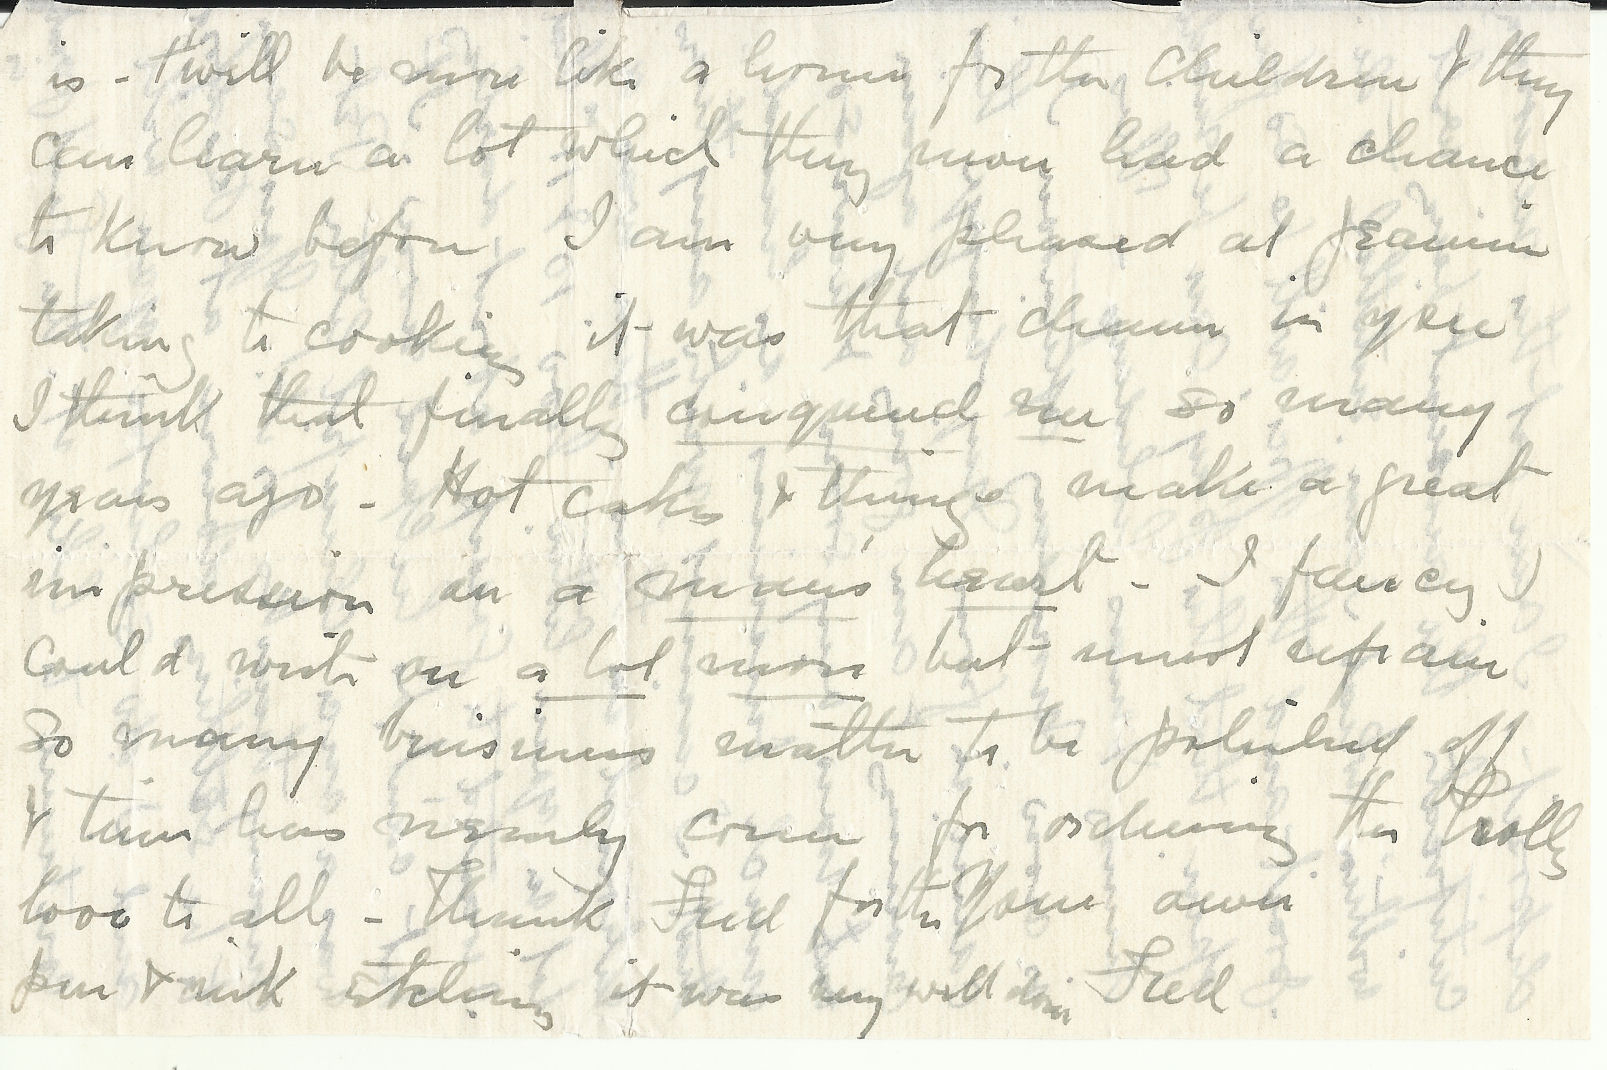 is - t'will be more like a home for the children & they
can learn a lot which they never had a chance
to know before. I am very pleased at Jeannie
taking to cooking it was that charm in you
I think that finally conquered me so many
years ago - Hot cakes & things make a great
impression on a man's heart - I fancy I
could write on a lot more but must refrain
so many business matters to be polished off
& time has nearly come for ordering the trolley
love to all - Thank Fred for the Your own
pen & ink etching it was very well done Fred